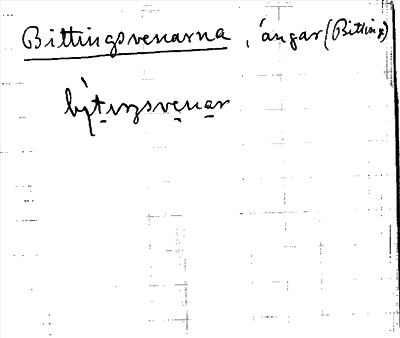 Bittingsvenarna, ängar (Bitting)
bỳt̠ıŋsvęna̠r